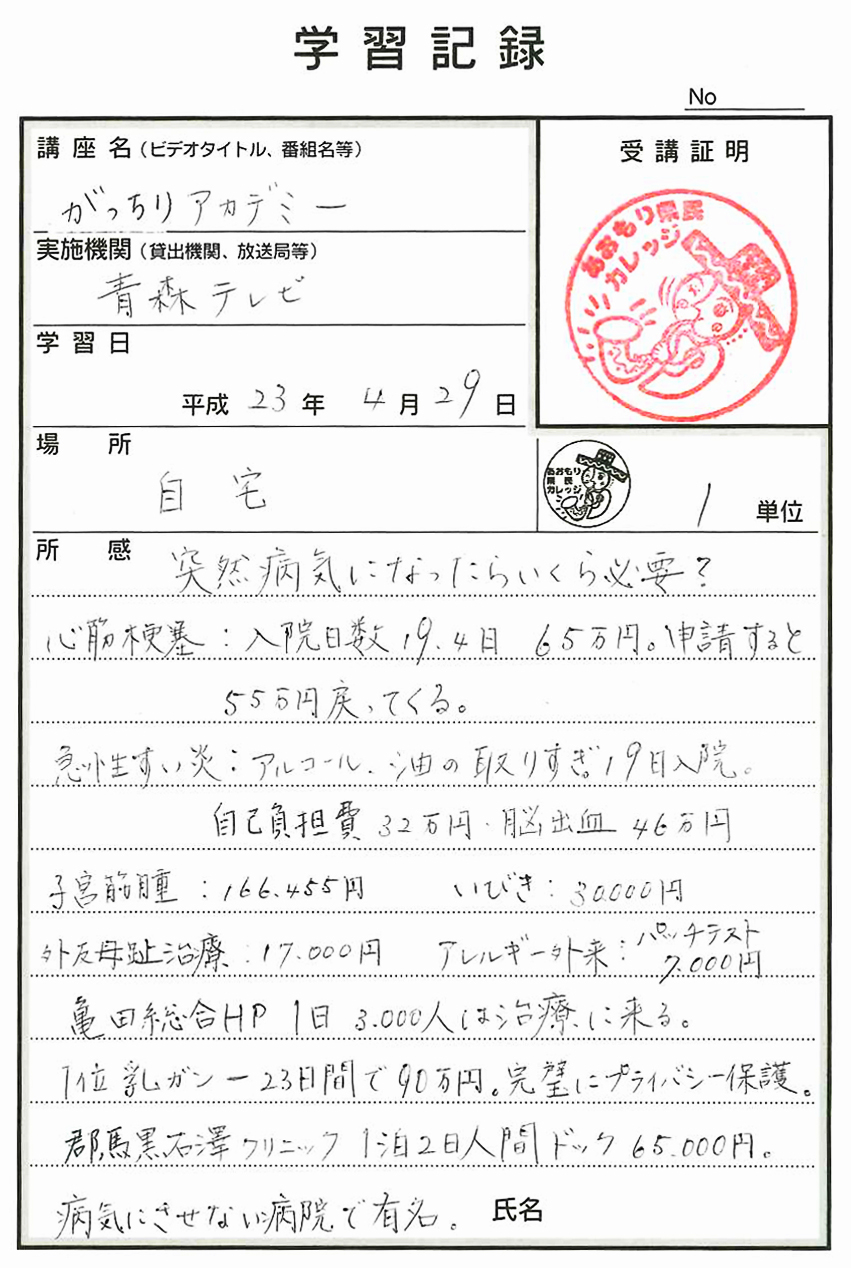 学習記録
No
講座名（ビデオタイトル、番組名等）
がっちりアカデミー
実施機関（貸出機関、放送局等）
青森テレビ
学習日
平成 23 年 4 月 29 日
受講証明
あおもり県民
カレッジ
場所
自宅
あおもり
県民
カレッジ
1 単位
所感
突然病気になったらいくら必要?
心筋梗塞:入院日数19.4日 65万円。申請すると
55万円戻ってくる。
急性すい炎:アルコール、油の取りすぎ。19日入院。
自己負担費32万円・脳出血 46万円
子宮筋腫:166.455円 いびき:30.000円
外反母趾治療:17.000円 アレルギー外来:パッチテスト
7.000円
亀田総合HP 1日 3.000人は治療に来る。
1位乳ガンー23日間で90万円。完璧にプライバシー保護。
郡馬黒石澤クリニック 1泊2日人間ドック 65.000円。
病気にさせない病院で有名。
氏名